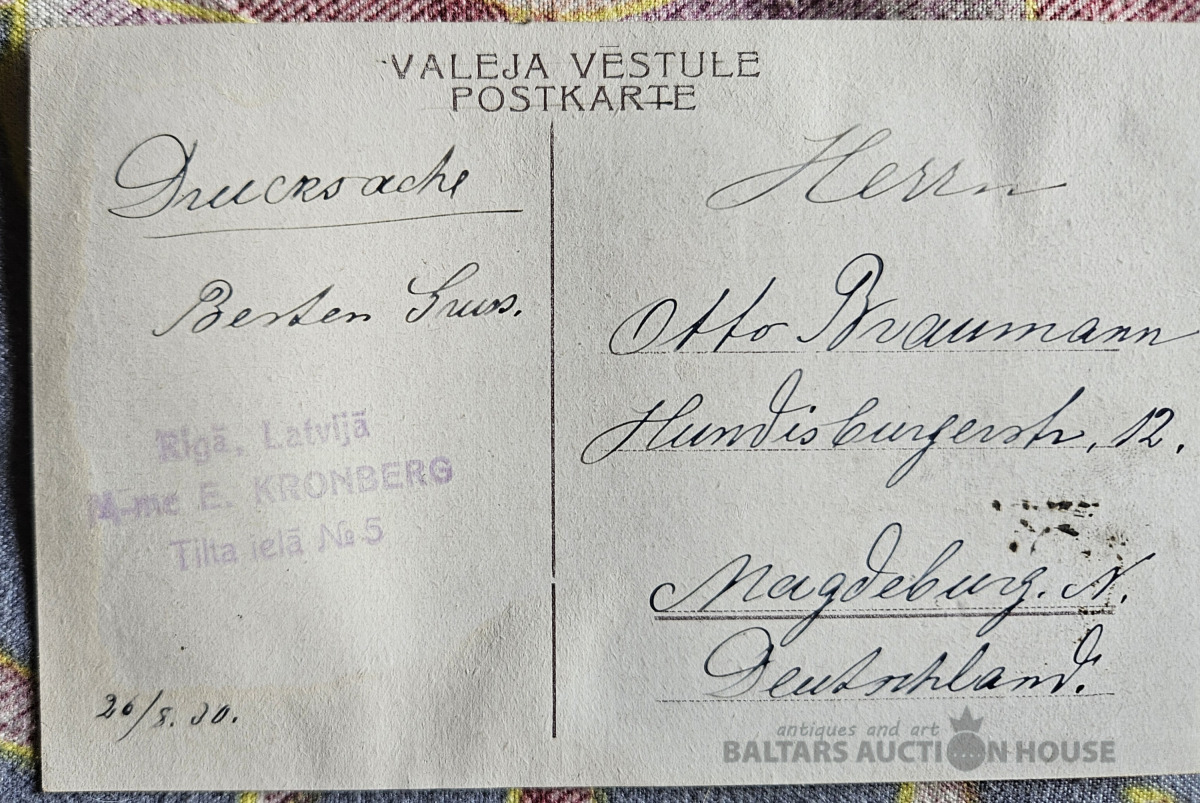 VALEJA VĒSTULE
POSTKARTE
Drucksache
Besten Gruss.
Rīgā, Latvijā
M-me E. KRONBERG
Tilta ielā № 5
26/8. 30.
Herrn
Otto Braumann
Hundisburgerstr, 12.
Magdeburg. N.
Deutschland.
antiques and art
BALTARS AUCTION HOUSE